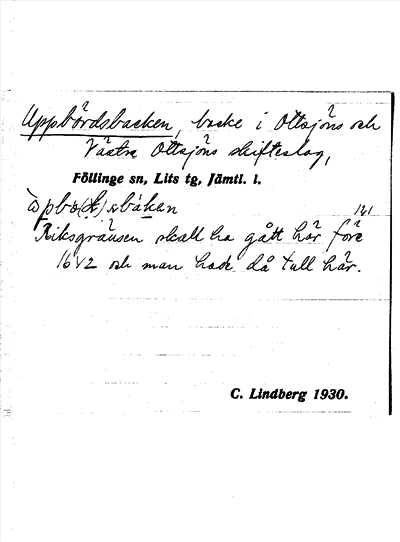 Uppbördsbacken, backe i Ottsjöns och
Västra Ottsjöns skifteslag,
Föllinge sn, Lits tg, Jämtl. l.
Riksgränsen skall ha gått här före
och man hade då tull här.
C. Lindberg 1930.